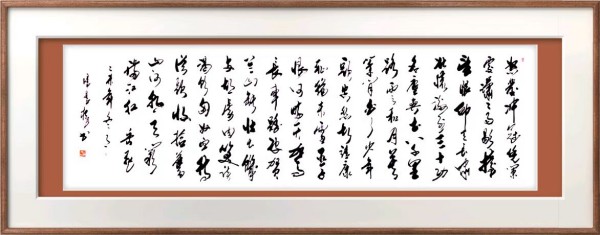 怒髮衝冠憑闌
處瀟瀟雨歇抬
望眼仰天長嘯
壯懷激烈三十功
名塵與土八千里
路雲和月莫
等閒白了少年
頭空悲切靖康
恥猶未雪臣子
恨何時滅駕
長車踏破賀
蘭山缺壯志饑餐
胡虜肉笑談
渴飲匈奴血待
從頭收拾舊
山河朝天闕
滿江紅 岳飛